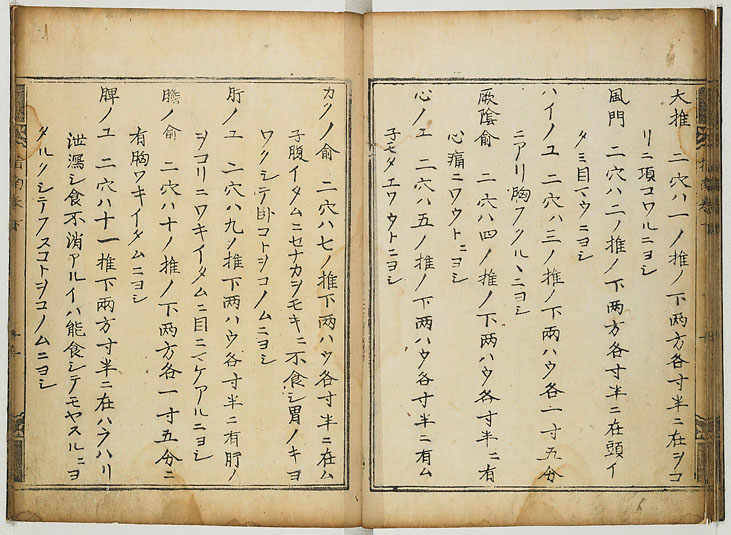 大推 二穴ハ一ノ推ノ下両方各寸半ニ在ヲコ
リニ項コワルニヨシ
風門 二穴ハ二ノ推ノ下両方各寸半ニ在頭イ
タミ目マウニヨシ
ハイノユ 二穴ハ三ノ推ノ下両ハウ各一寸五分
ニアリ胸フクルヽニヨシ
厥陰俞 二穴ハ四ノ推ノ下両ハウ各寸半ニ有
心痛ニワウトニヨシ
心ノユ 二穴ハ五ノ推ノ下両ハウ各寸半ニ有ム
子モタエワウトニヨシ
カクノ俞 二穴ハ七ノ推下両ハウ各寸半ニ在ム
子腹イタムニセナカヲモキニ不食シ胃ノキヨ
ワクシテ卧コトヲコノムニヨシ
肝ノユ 二穴ハ九ノ推下両ハウ各寸半ニ有肝ノ
ヲコリニワキイタムニ目ニマケアルニヨシ
膽ノ俞 二穴ハ十ノ推ノ下両方各一寸五分ニ
有胸ワキイタムニヨシ
脾ノユ 二穴ハ十一推下兩方寸半ニ在ハラハリ
泄瀉シ食不消アルイハ能食シテモヤスルニヨ
タルクシテフスコトヲコノムニヨシ